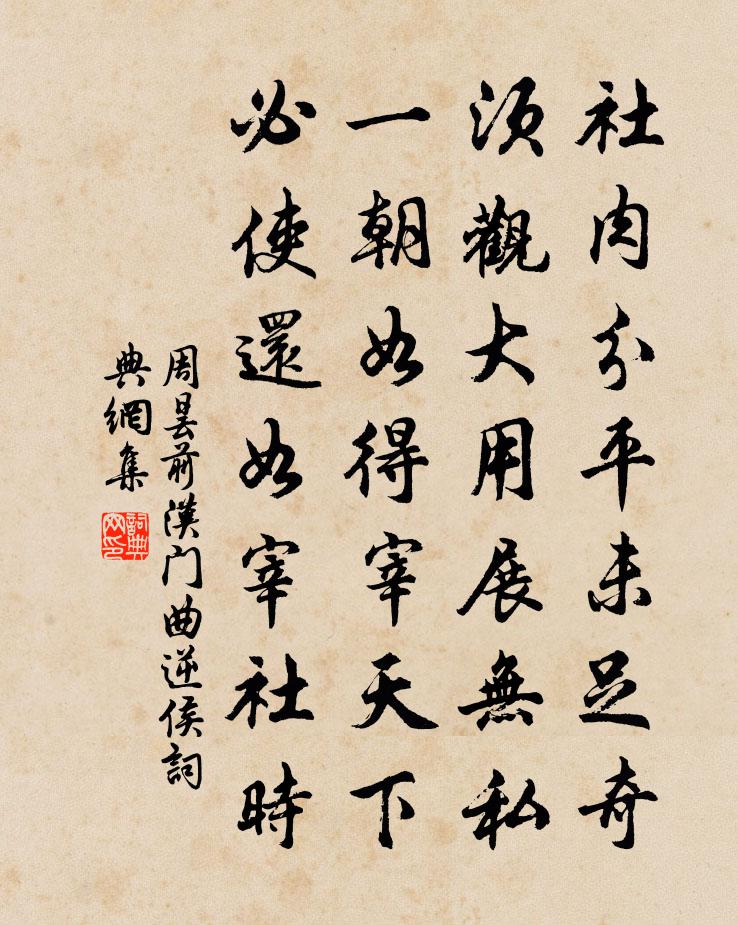 社肉分平未足奇
須觀大用展無私
一朝如得宰天下
必使還如宰社時
周昙前漢门曲逆侯詞
典網集
詞典
网印